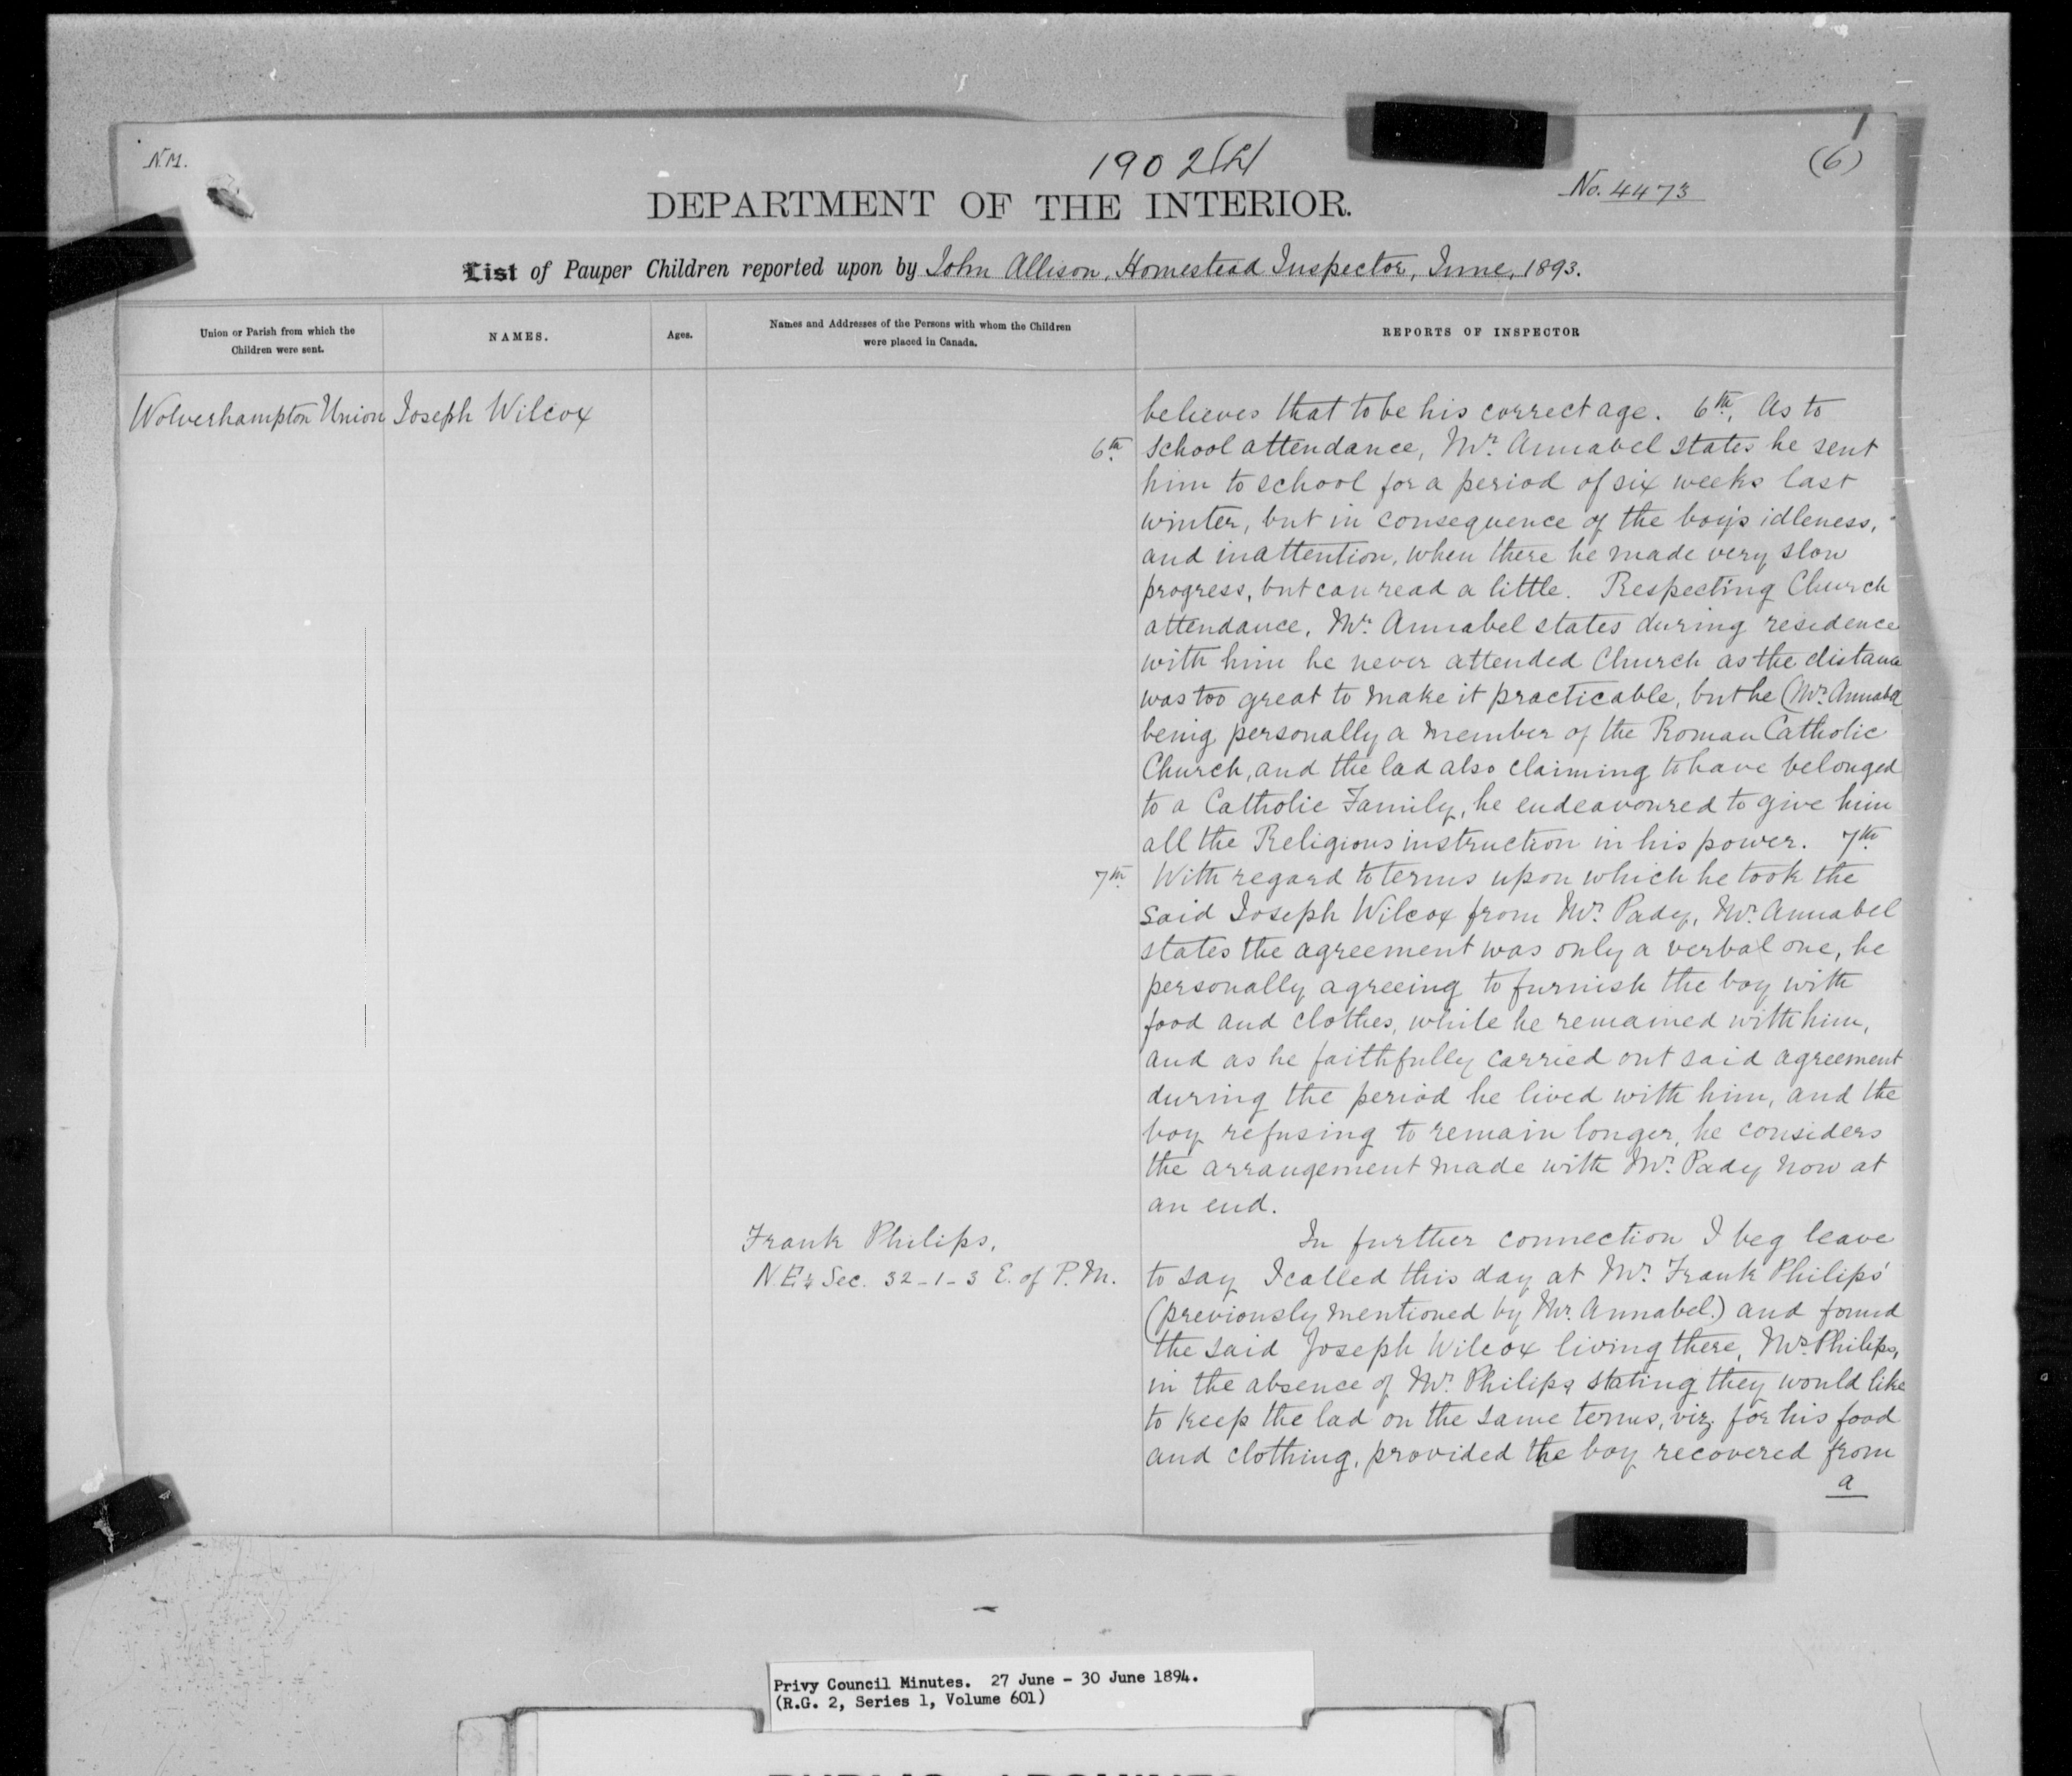 N.M.
1902
(6)
No. 4473
DEPARTMENT OF THE INTERIOR.
List of Pauper Children reported upon by John Allison, Homestead Inspector, June, 1893.
Union or Parish from which the
Children were sent.
NAMES.
Ages.
Names and Addresses of the Persons with whom the Children
were placed in Canada.
REPORTS OF INSPECTOR
Wolverhampton Union Joseph Wilcox
believes that to be his correct age. 6th. As to
6th. school attendance, Mr. Annabel states he sent
him to school for a period of six weeks last
winter, but in consequence of the boy's idleness,
and inattention, when there he made very slow
progress, but can read a little. Respecting Church
attendance, Mr. Annabel states during residence
with him he never attended Church as the distance
was too great to make it practicable, but he (Mr. Annabel
being personally a member of the Roman Catholic
Church, and the lad also claiming to have belonged
to a Catholic Family, he endeavoured to give him
all the Religious instruction in his power. 7th.
7th. With regard to terms upon which he took the
said Joseph Wilcox from Mr. Pady, Mr. Annabel
states the agreement was only a verbal one, he
personally agreeing to furnish the boy with
food and clothes, while he remained with him,
and as he faithfully carried out said agreement
during the period he lived with him, and the
boy refusing to remain longer, he considers
the arrangement made with Mr. Pady now at
an end.
Frank Philips,
N.E¼ Sec. 32-1-3 E. of P.M.
In further connection I beg leave
to say I called this day at Mr. Frank Philips'
(previously mentioned by Mr. Annabel.) and found
the said Joseph Wilcox living there, Mrs. Philips,
in the absence of Mr. Philips stating they would like
to keep the lad on the same terms, viz. for his food
and clothing, provided the boy recovered from
a
Privy Council Minutes. 27 June - 30 June 1894.
(R.G. 2, Series 1, Volume 601)